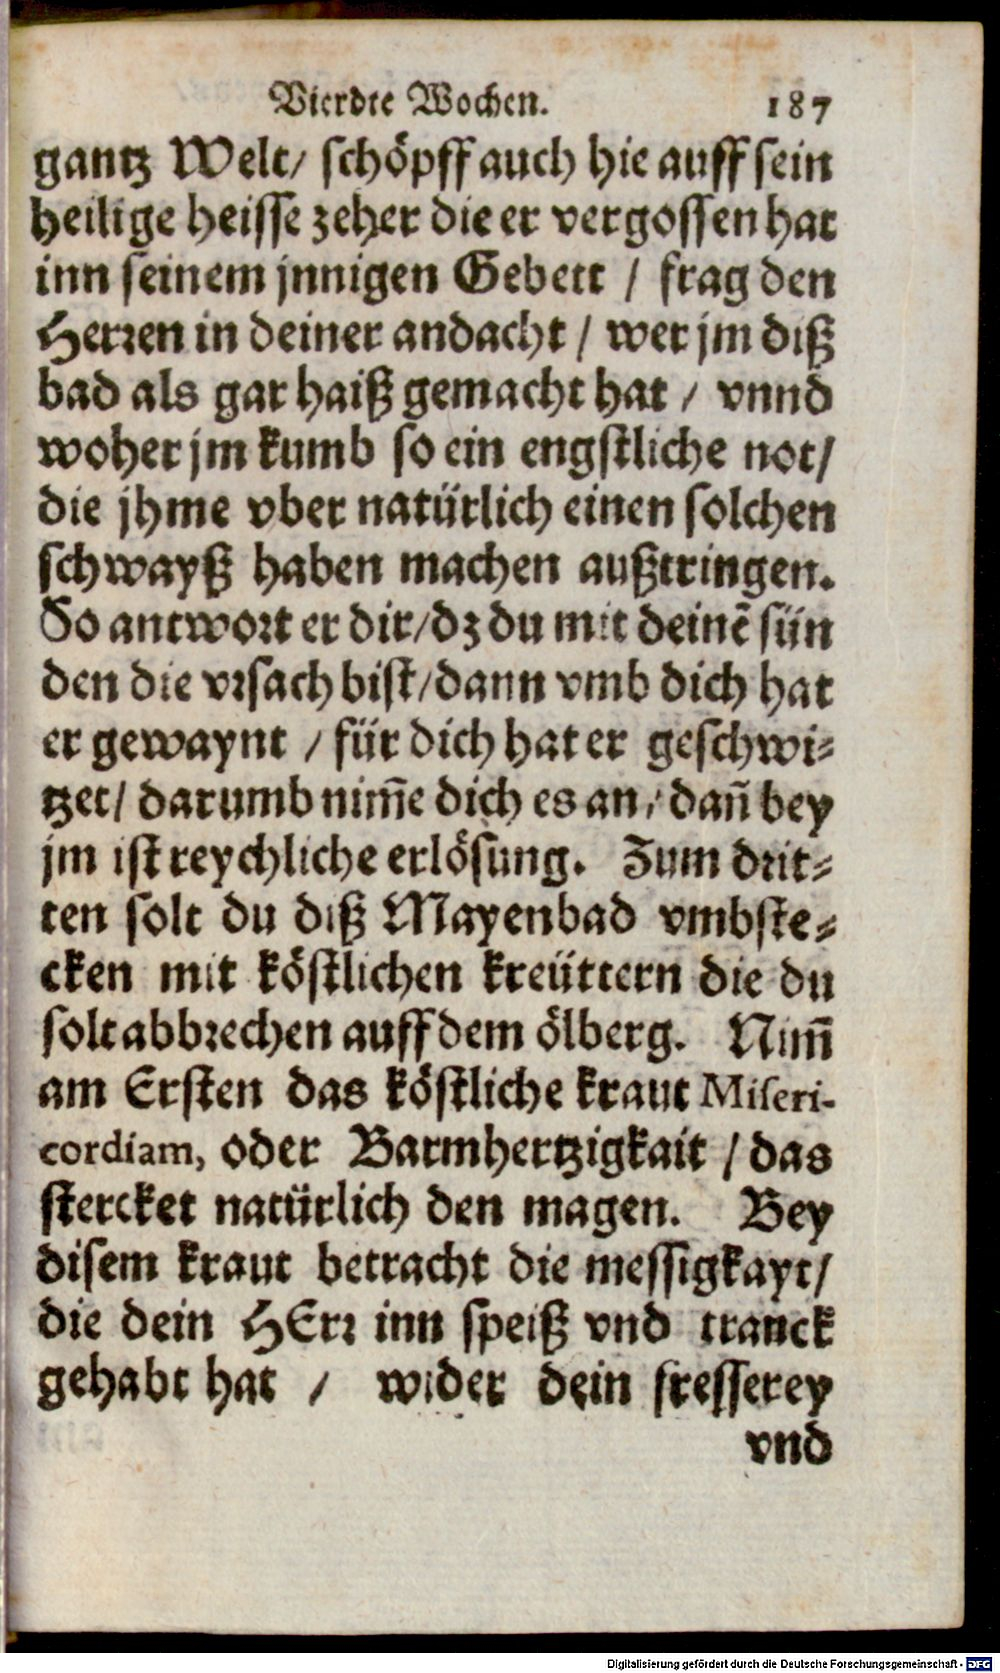 Vierdte Wochen. 187
gantz Welt/ schöpff auch hie auff sein
heilige heisse zeher die er vergossen hat
inn seinem jnnigen Gebett / frag den
Herren in deiner andacht / wer jm diß
bad als gar haiß gemacht hat / vnnd
woher jm kumb so ein engstliche not/
die jhme vber natürlich einen solchen
schwayß haben machen außtringen.
So antwort er dir/dz du mit deinẽ sün
den die vrsach bist/dann vmb dich hat
er gewaynt / für dich hat er geschwi-
tzet/ darumb nim̃e dich es an/ dañ bey
jm ist reychliche erlösung. Zum drit-
ten solt du diß Mayenbad vmbste-
cken mit köstlichen kreüttern die du
solt abbrechen auff dem ölberg. Nim̃
am Ersten das köstliche kraut Miseri-
cordiam, oder Barmhertzigkait / das
stercket natürlich den magen. Bey
disem kraut betracht die messigkayt/
die dein HErr inn speiß vnd tranck
gehabt hat / wider dein fresserey
vnd
Digitalisierung gefördert durch die Deutsche Forschungsgemeinschaft - DFG